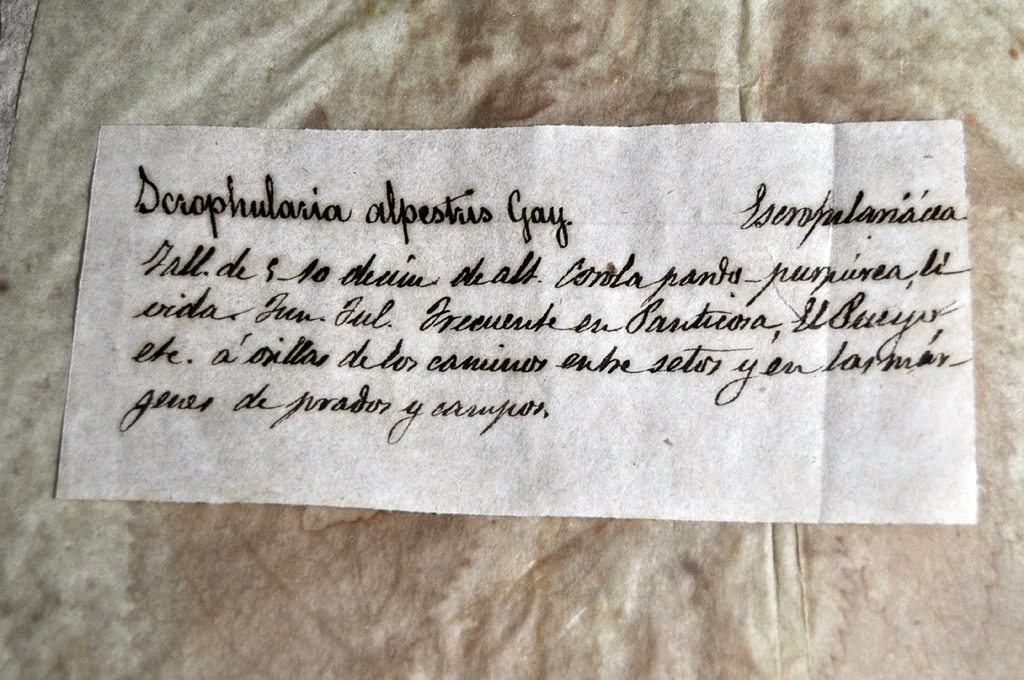 Scrophularia alpestris Gay. Escrofulariácea
Tall. de 5 10 decím de alt. Corola pardo-purpúrea, li
vida. Jun. Jul. Frecuente en Panticosa, El Pueyo
etc. á orillas de los caminos entre setos y en las már-
genes de prados y campos.